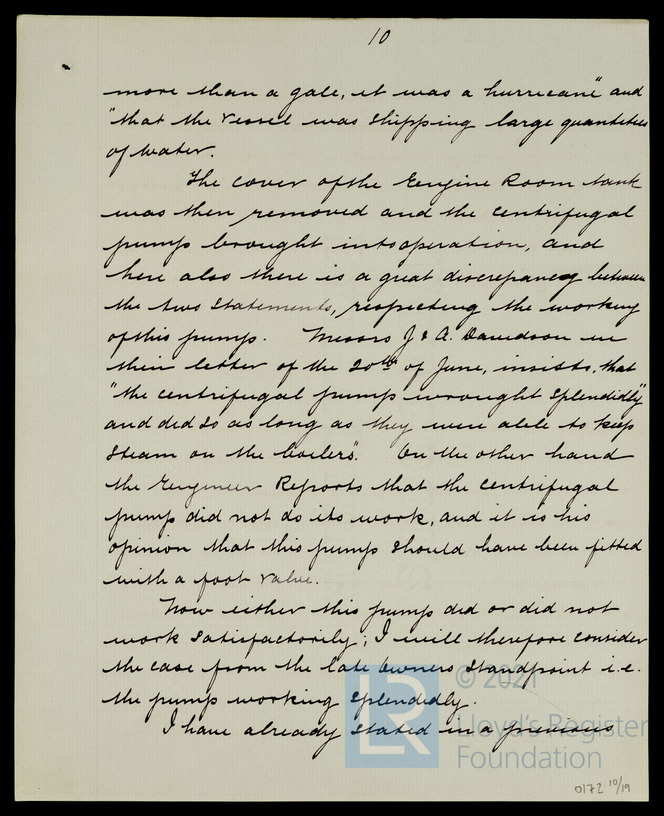 10
more than a gale, it was a hurricane" and
"that the vessel was shipping large quantities
of water.
The cover of the Engine Room tank
was then removed and the centrifugal
pump brought into operation, and
here also there is a great discrepancy between
the two statements, respecting the working
of this pump. Messrs J & A. Davidson in
their letter of the 20th of June, insists, that
"the centrifugal pump wrought splendidly"
and did so as long as they were able to keep
steam on the boilers". On the other hand
the Engineer Reports that the centrifugal
pump did not do its work, and it is his
opinion that this pump should have been fitted
with a foot valve.
Now either this pump did or did not
work satisfactorily; I will therefore consider
the case from the late owners standpoint i.e.
the pump working splendidly.
I have already stated in a previous
© 2021
Lloyd's Register
Foundation
LR
0172 10/19